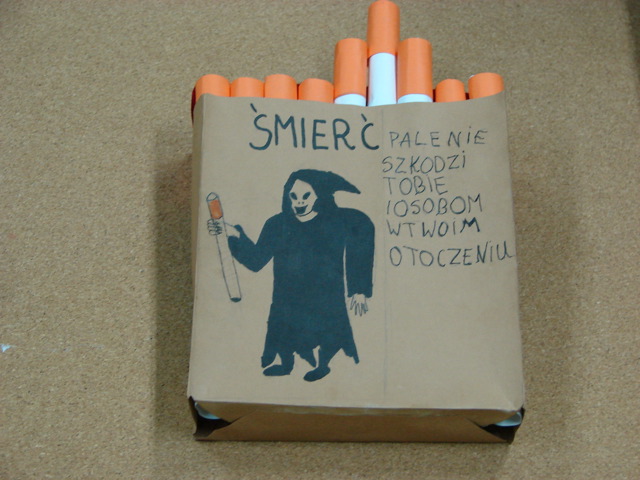 ŚMIERĆ
PALENIE
SZKODZI
TOBIE
IOSOBOM
WTWOIM
OTOCZENIU